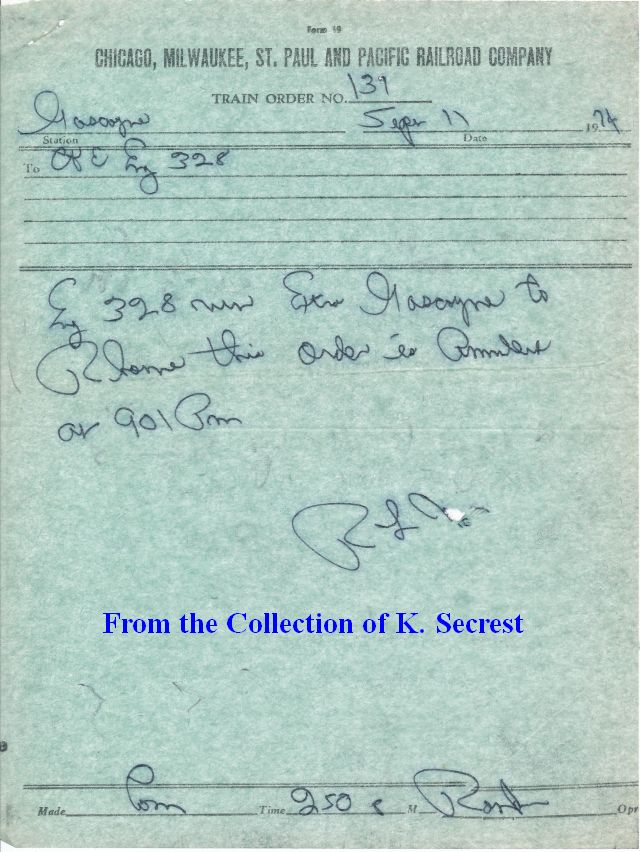 Form 19
CHICAGO, MILWAUKEE, ST. PAUL AND PACIFIC RAILROAD COMPANY
TRAIN ORDER NO. 131
Gascoyne Sept 11 1974
Station Date
To C&E Eng 328
Eng 328 run Extra Gascoyne to
Rhame this order is Annulled
at 901 Pm
R L
From the Collection of K. Secrest
Made Com Time 250 M Opr